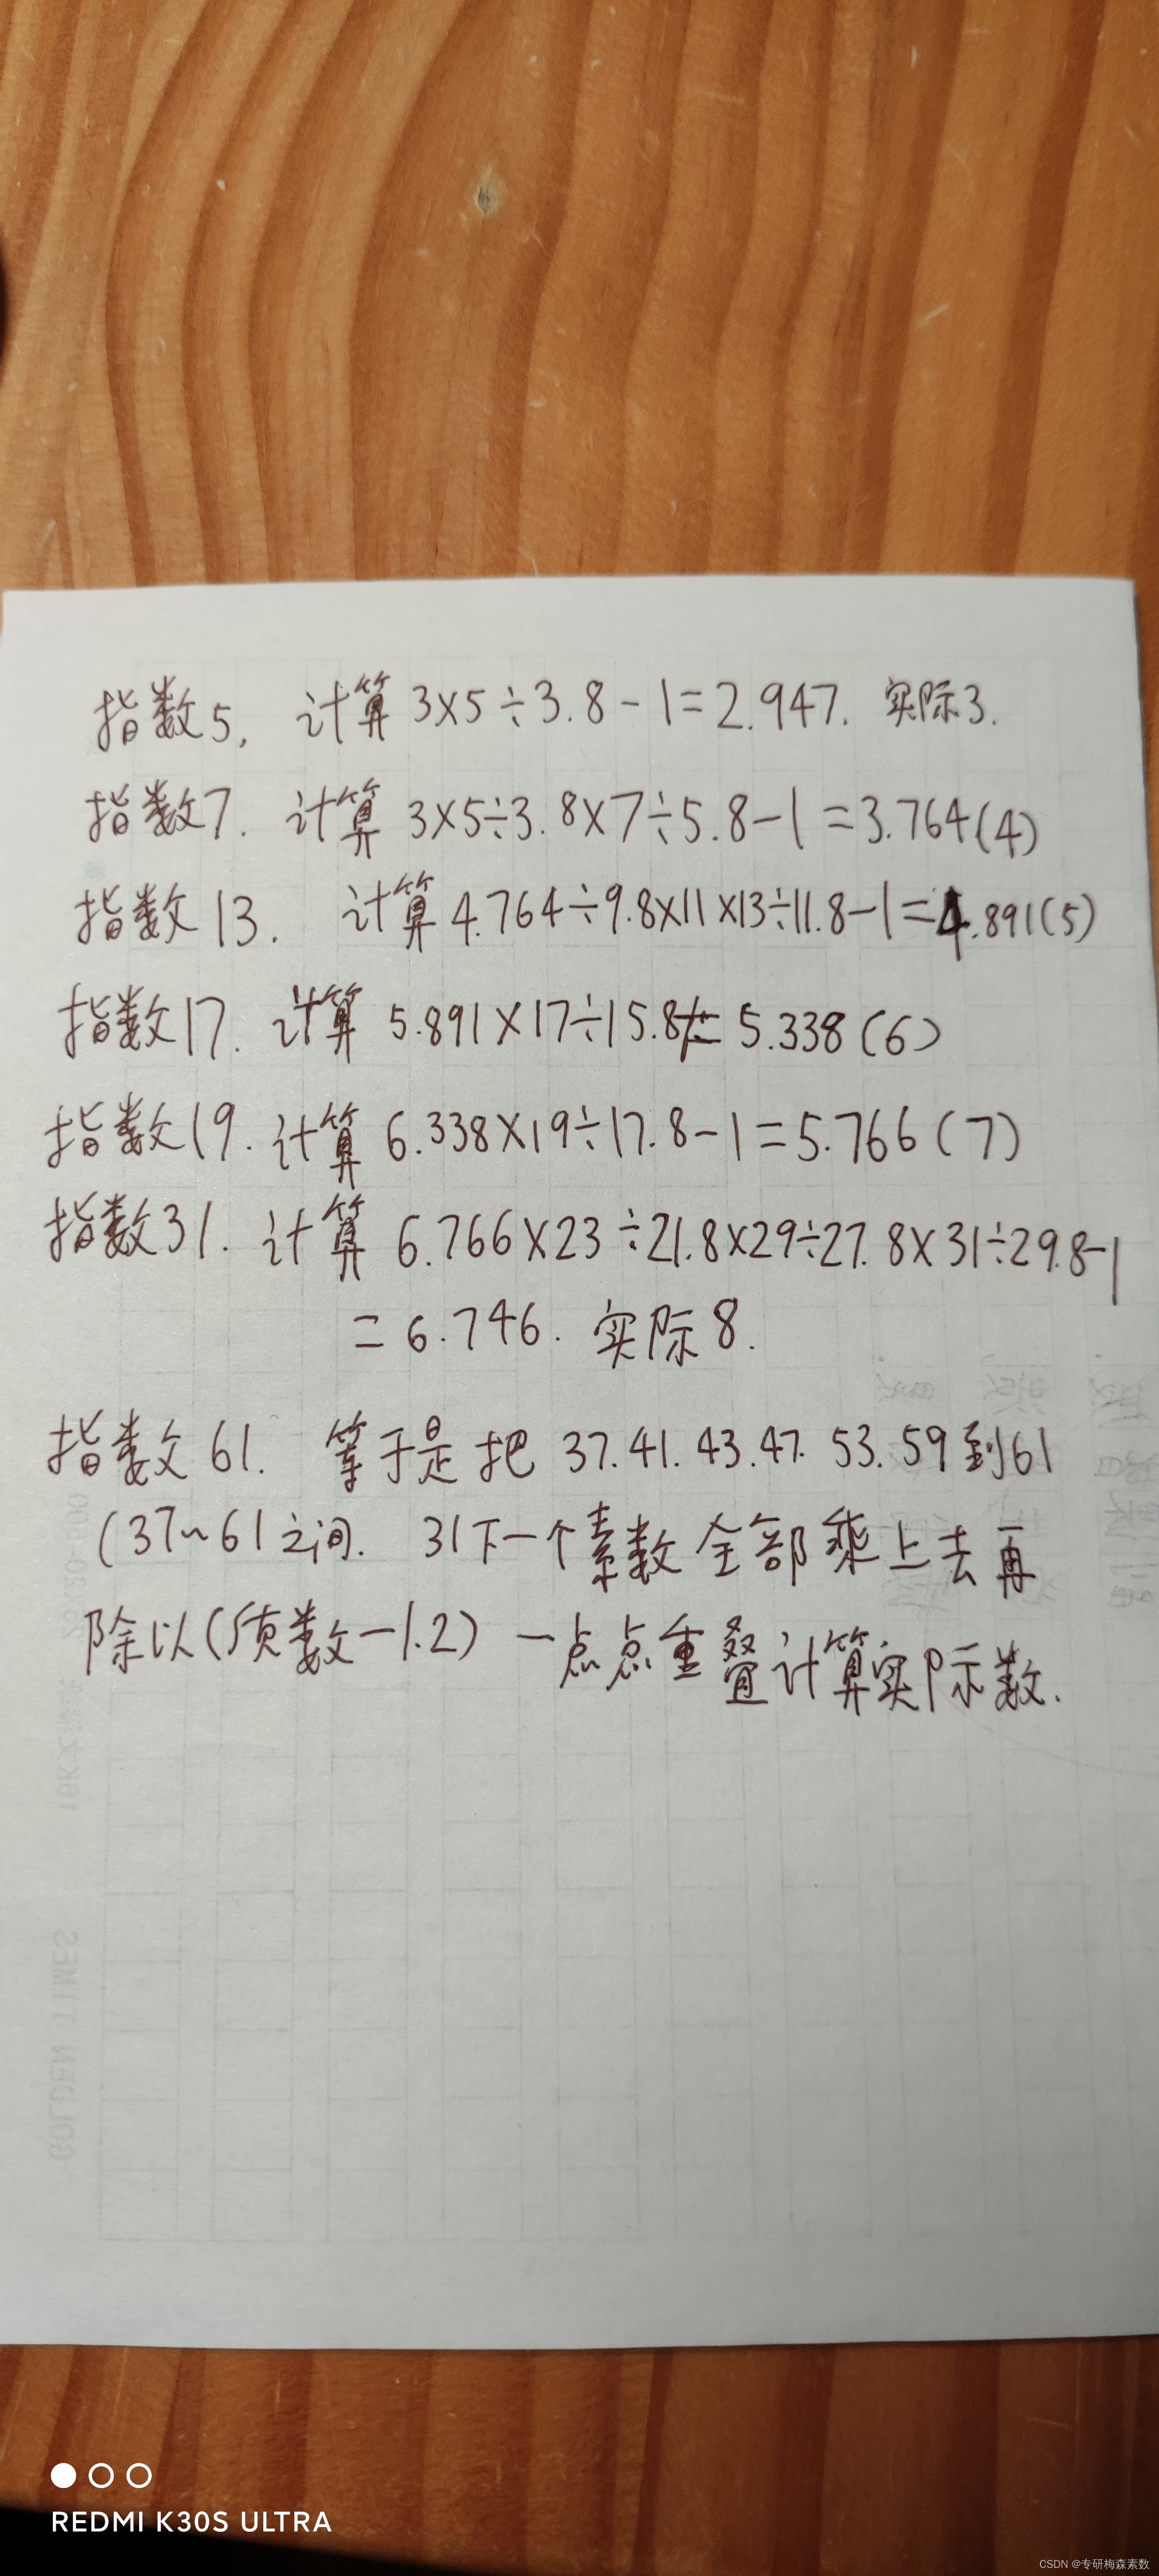 指数5, 计算 3×5÷3.8-1=2.947. 实际3.
指数7. 计算 3×5÷3.8×7÷5.8-1=3.764(4)
指数13. 计算4.764÷9.8×11×13÷11.8-1=4.891(5)
指数17. 计算 5.891×17÷15.8-1=5.338(6)
指数19. 计算 6.338×19÷17.8-1=5.766(7)
指数31. 计算 6.766×23÷21.8×29÷27.8×31÷29.8-1
=6.746. 实际8.
指数61. 等于是把 37.41.43.47.53.59到61
(37~61之间. 31下一个素数全部乘上去再
除以(质数-1.2)一点点重叠计算实际数.
GOLDEN TIMES
REDMI K30S ULTRA
CSDN @专研梅森素数